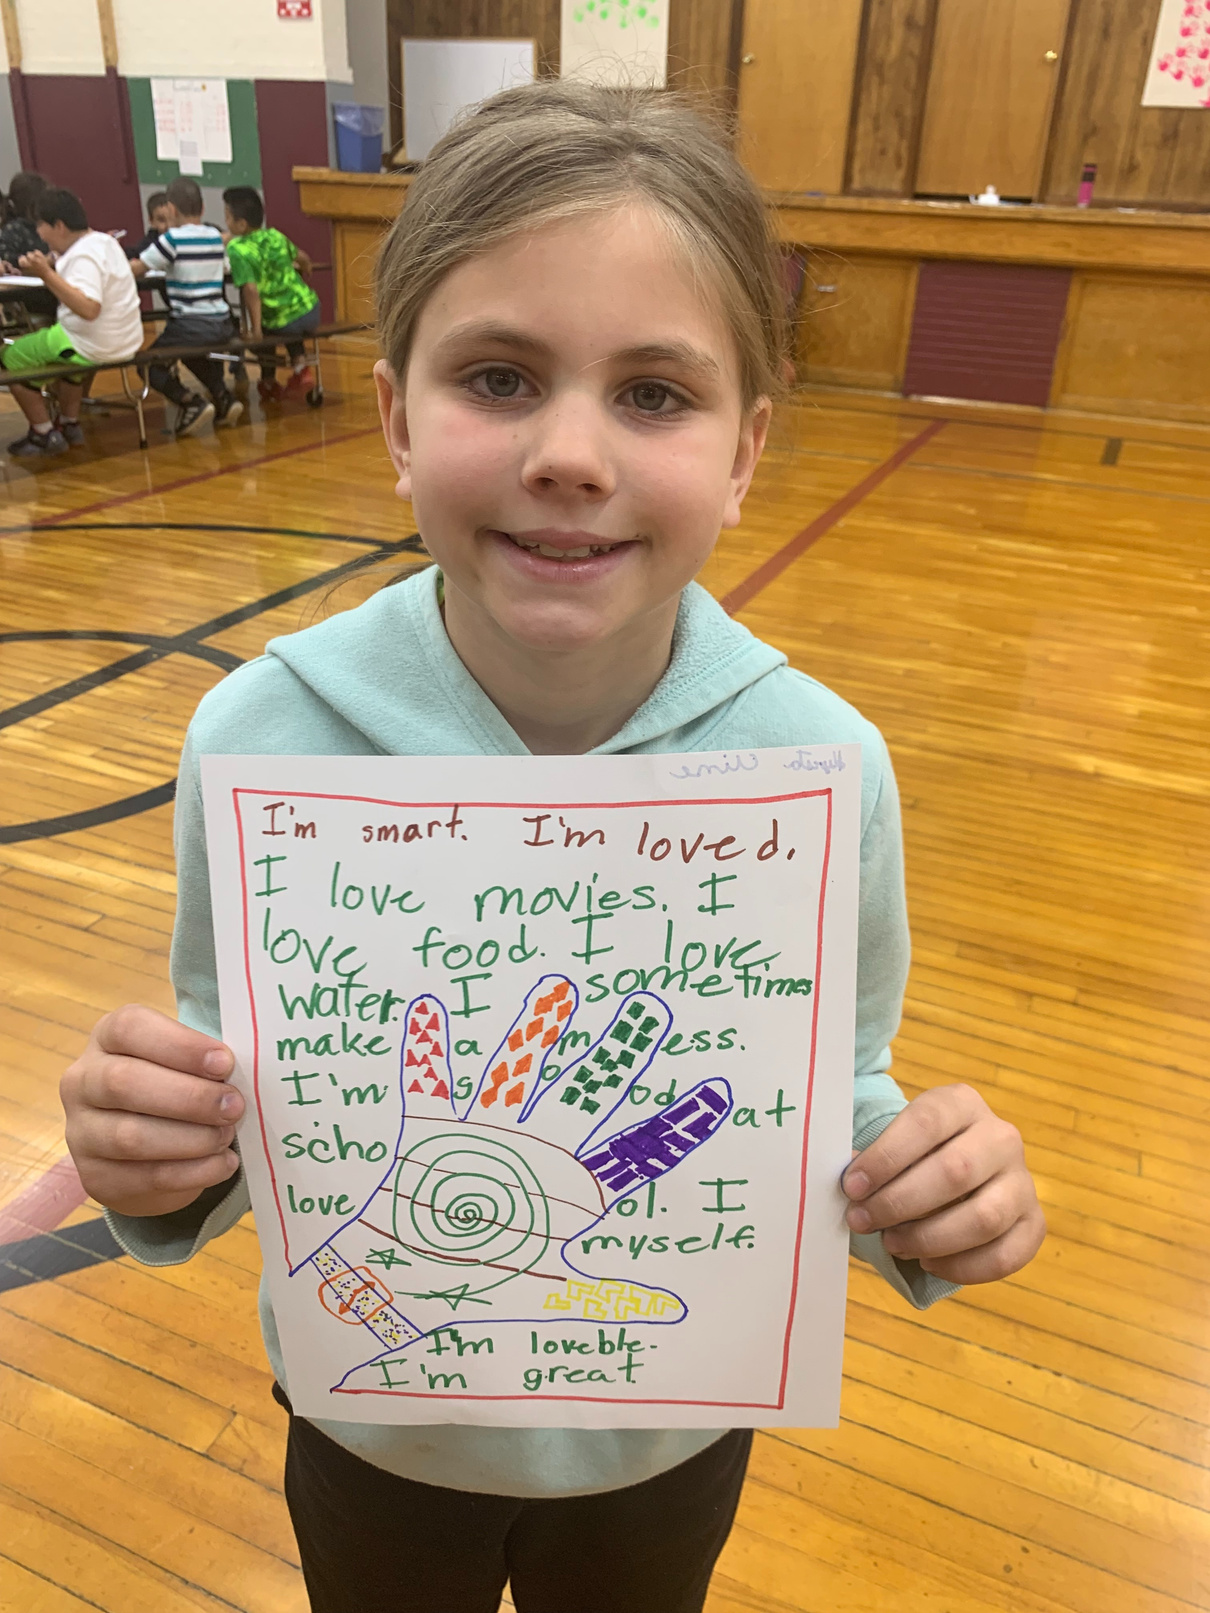 I'm smart. I'm loved.
I love movies. I
love food. I love
water. I sometimes
make a mess.
I'm good at
school. I
love myself.
I'm loveble.
I'm great